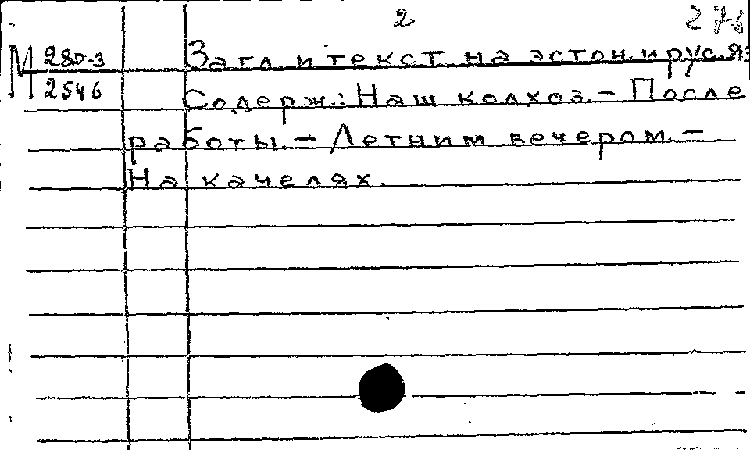 2
М 280-3
2546
Загл. и текст на эстон. и рус. яз.
Содерж.: Наш колхоз. – После
работы. – Летним вечером. –
На качелях.